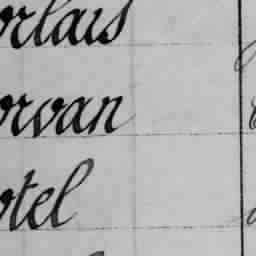 orlais
orvan
otel